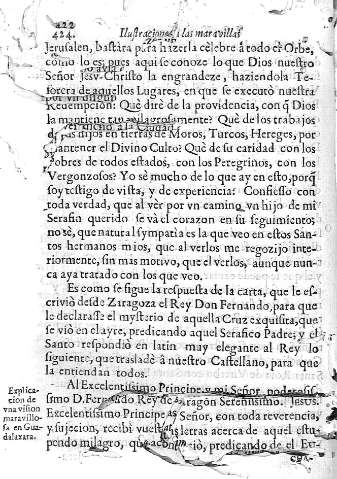 422
424. Ilustraciones, i las maravillas
Jerusalen, bastàra para hazerla cèlebre à todo el Orbe,
como lo es; pues aqui se conoze lo que Dios nuestro
Señor Jesv-Christo la engrandeze, haziendola Te-
sorera de aquellos Lugares, en que se executò nuestra
Redempcion? Què dirè de la providencia, con q̃ Dios
la mantiene tan milagrosamente? Què de los trabajos
de sus hijos en tierras de Moros, Turcos, Hereges, por
mantener el Divino Culto? Què de su caridad con los
Pobres de todos estados, con los Peregrinos, con los
Vergonzosos? Yo sè mucho de lo que ay en esto, porq̃
soy testigo de vista, y de experiencia: Confiesso con
toda verdad, que al vèr por vn camino vn hijo de mi
Serafin querido se và el corazon en su seguimiento;
no sè, que natural sympatia es la que veo en estos San-
tos hermanos mios, que al verlos me regozijo inte-
riormente, sin mas motivo, que el verlos, aunque nun-
ca aya tratado con los que veo.
Es como se sigue la respuesta de la carta, que le es-
criviò desde Zaragoza el Rey Don Fernando, para que
le declarasse el mysterio de aquella Cruz exquisita, que
se viò en el ayre, predicando aquel Serafico Padre; y el
Santo respondiò en latin muy elegante al Rey lo
siguiente, que trasladè à nuestro Castellano, para que
la entiendan todos.
Al Excelentissimo Principe, y mi Señor poderosis-
simo D. Fernando Rey de Aragòn Serenissimo. Jesus.
Excelentissimo Principe, Señor, con toda reverencia,
y sujecion, recibì vuestras letras acerca de aquel estu-
pendo milagro, que aconteciò, predicando el Eu-
Explica-
cion de
vna vision
maravillo-
sa en Gua-
dalaxara.